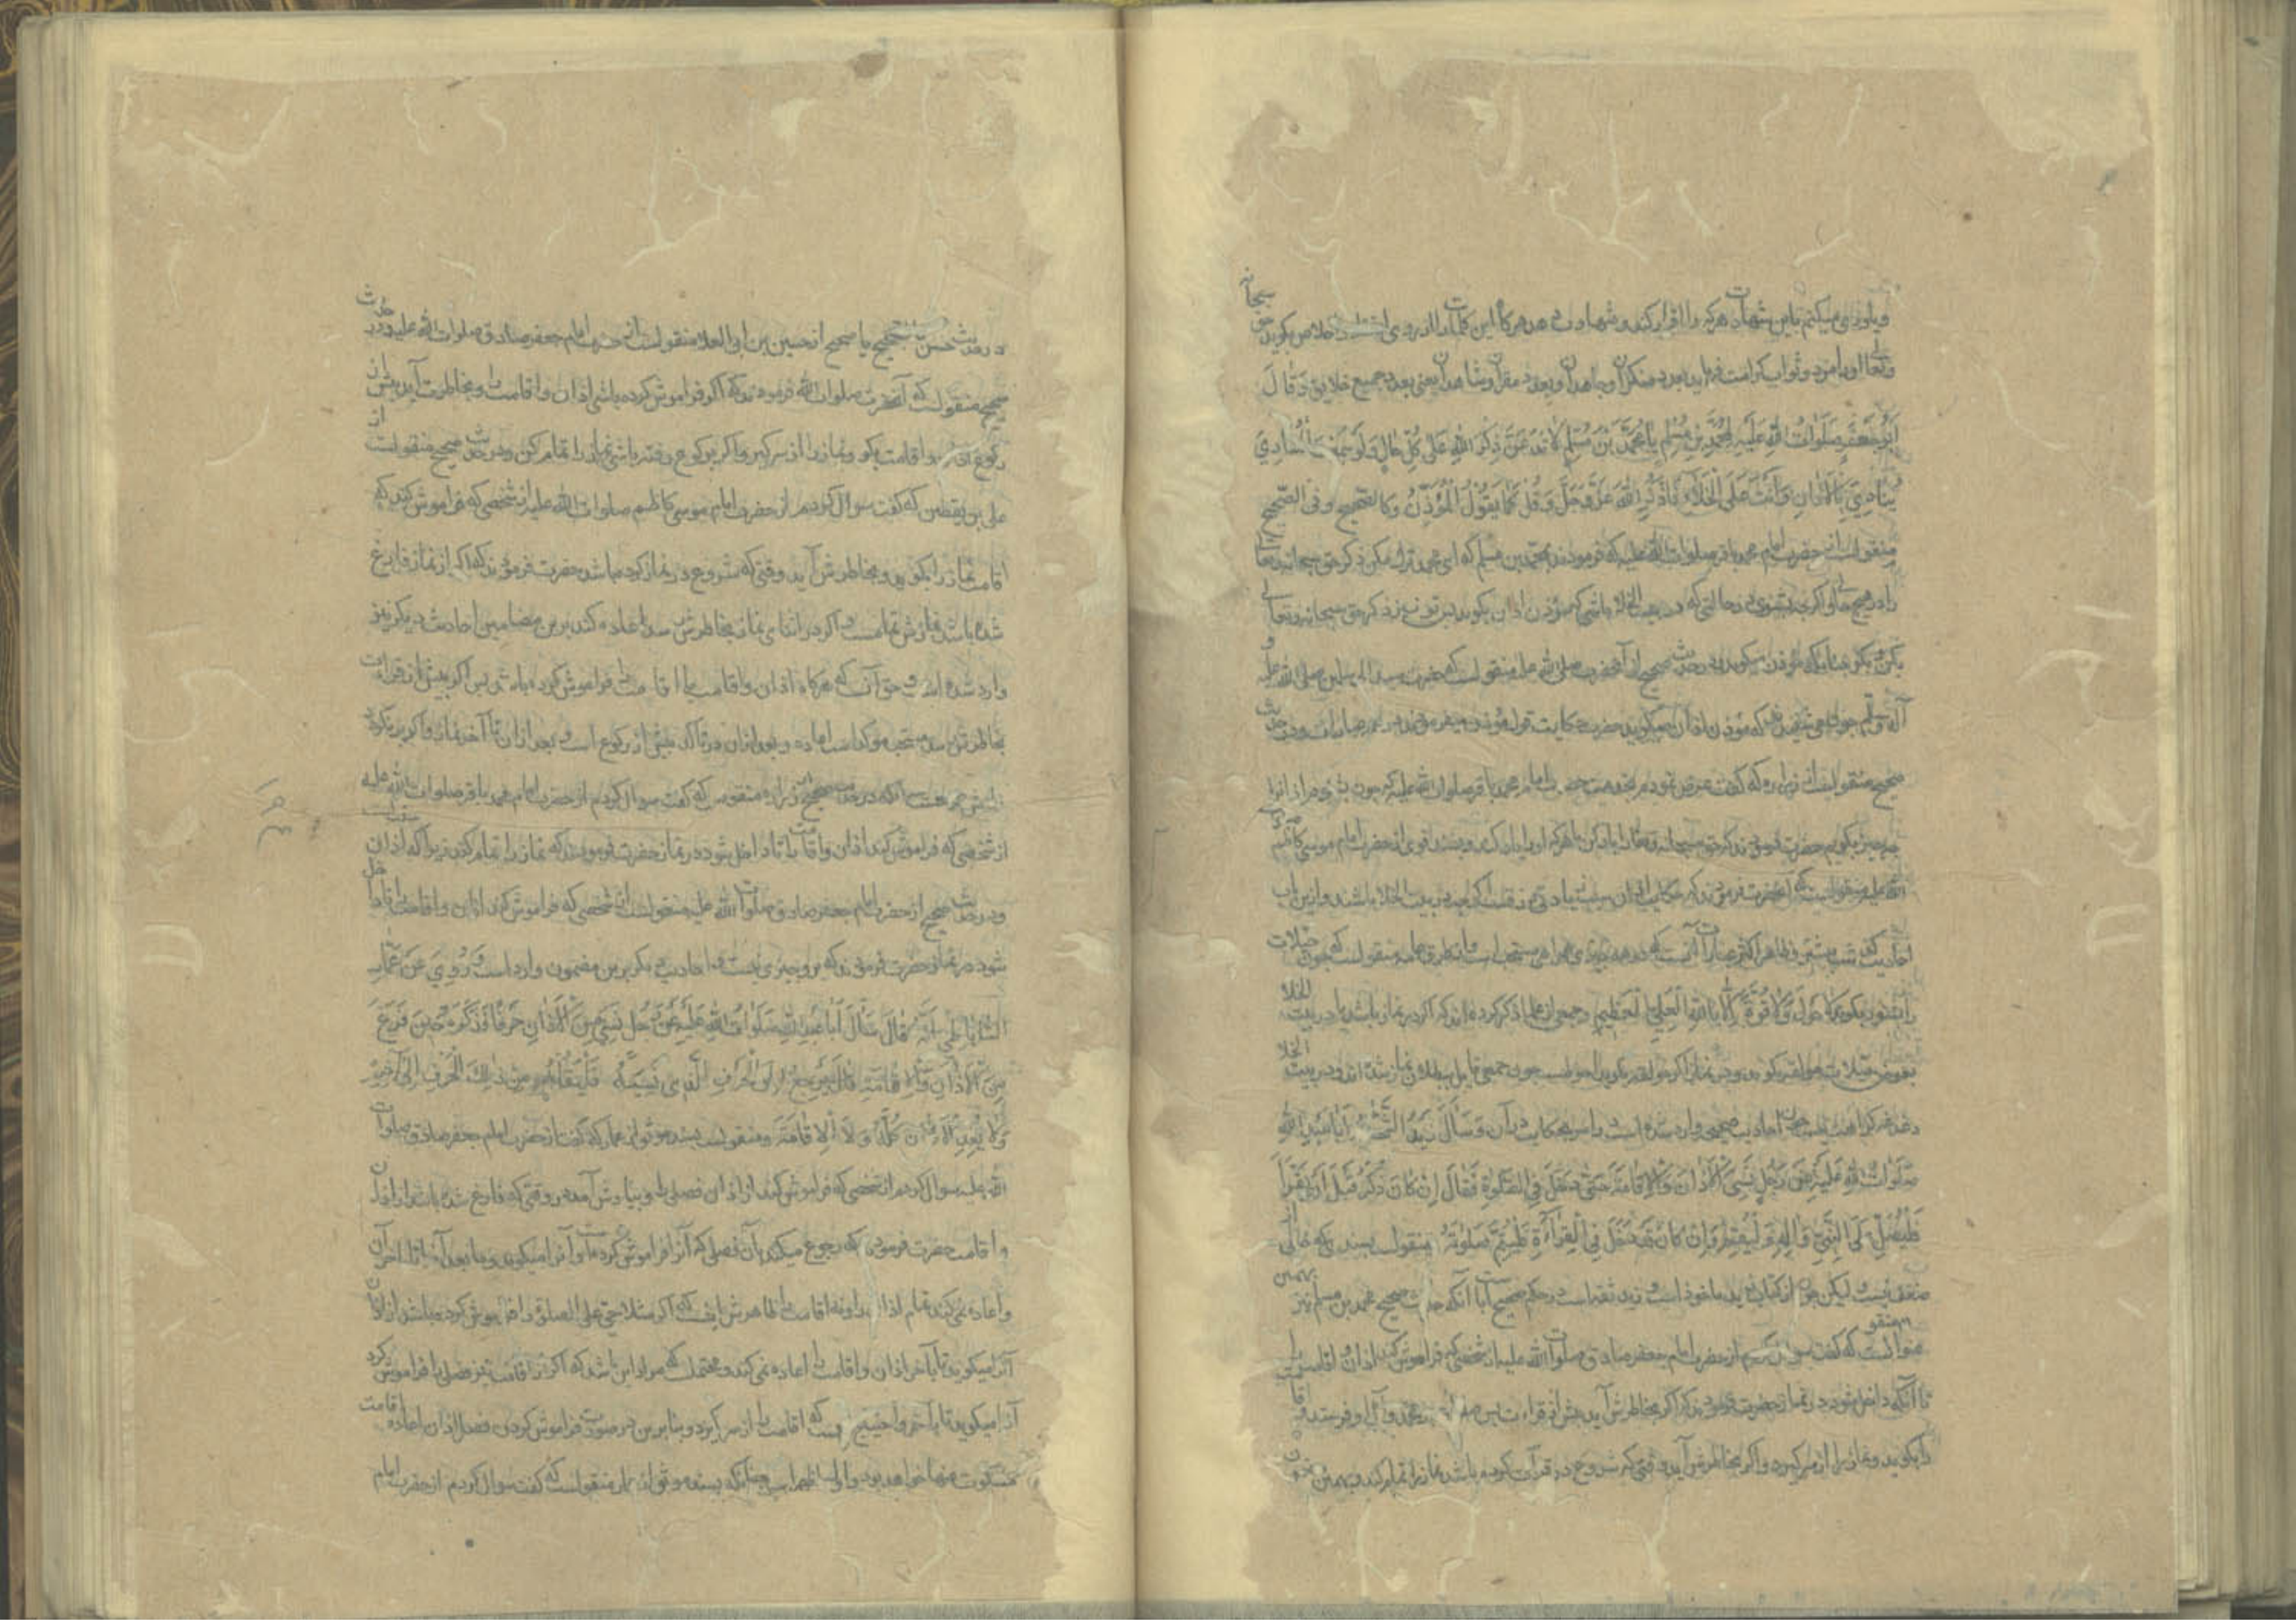 و یاوری میکنم باین شهادت هر که را اقرار کند و شهادت دهد هرگاه این کلمات را از روی اخلاص بگوید حق سبحانه
و تعالی او را مزد و ثواب کرامت فرماید بعدد منکران و جاهدان و بعدد مقران و شاهدان یعنی بعدد جمیع خلایق وَقَالَ
اَبُو جَعْفَرٍ صَلَوَاتُ اللّٰهِ عَلَیْهِ لِمُحَمَّدِ بْنِ مُسْلِمٍ یَا مُحَمَّدَ بْنَ مُسْلِمٍ لَا تَدَعَنَّ ذِکْرَ اللّٰهِ عَلَی کُلِّ حَالٍ وَلَوْ سَمِعْتَ الْمُنَادِیَ
یُنَادِی بِالْاَذَانِ وَاَنْتَ عَلَی الْخَلَاءِ فَاذْکُرِ اللّٰهَ عَزَّ وَجَلَّ وَقُلْ کَمَا یَقُولُ الْمُؤَذِّنُ و کالصحیح و فی الصحیح
منقولست از حضرت امام محمد باقر صلوات الله علیه که فرمودند بمحمد بن مسلم که ای محمد ترک مکن ذکر حق سبحانه و تعالی
را در هیچ حالی و اگر چه بشنوی در حالتی که در بیت الخلا باشی که مؤذن اذان بگوید پس تو نیز ذکر حق سبحانه و تعالی
بکن و بگو چنانکه مؤذن میگوید و در حدیث صحیح از آنحضرت صلی الله علیه منقولست که حضرت سید المرسلین صلی الله علیه و
آله وسلم چون می شنیدند که مؤذن اذان میگوید حضرت حکایت قول مؤذن میفرمودند در همه عبارات و در حدیث
صحیح منقولست از زراره که گفت عرض نمودم بخدمت حضرت امام محمد باقر صلوات الله علیه که چون بشنوم اذان را
چه چیز بگویم حضرت فرمودند که حق سبحانه و تعالی را یاد کن با هر که او را یاد کند و بسند قوی از حضرت امام موسی کاظم صلوات
الله علیه منقولست که آنحضرت فرمودند که حکایت اذان سبب زیادتی رزقست اگر چه در بیت الخلا باشند و ازین باب
احادیث گذشت بیشتر و ظاهر اکثر عبارات آنست که در همه چیز همراهی مستحب است و از طرق عامه منقولست که چون حیعلات
را بشنود بگوید لَا حَوْلَ وَلَا قُوَّةَ اِلَّا بِاللّٰهِ الْعَلِیِّ الْعَظِیمِ و جمعی از علما ذکر کرده اند که اگر در نماز باشد یا در بیت الخلا
بعوض حیعلات حولقه بگوید و در نماز اگر حولقه بگوید احوطست چون جمعی قایل ببطلان نماز شده اند و در بیت الخلا
دغدغه کراهت نیست چون احادیث صحیحه وارد شده است و امر بحکایت در آن وَسَأَلَ زَیْدٌ الشَّحَّامُ اَبَا عَبْدِ اللّٰهِ
صَلَوَاتُ اللّٰهِ عَلَیْهِ عَنْ رَجُلٍ نَسِیَ الْاَذَانَ وَالْاِقَامَةَ حَتّٰی دَخَلَ فِی الصَّلٰوةِ فَقَالَ اِنْ کَانَ ذَکَرَ قَبْلَ اَنْ یَقْرَأَ
فَلْیُصَلِّ عَلَی النَّبِیِّ وَاٰلِهِ وَلْیُقِمْ وَاِنْ کَانَ قَدْ دَخَلَ فِی الْقِرَاءَةِ فَلْیُتِمَّ صَلٰوتَهُ منقولست بسندی که خالی از
ضعف نیست و لیکن چون از کتاب زید ماخوذ است و زید ثقه است در حکم صحیح است با آنکه حدیث صحیح محمد بن مسلم نیز بهمین
عنوانست که گفت سوال کردم از حضرت امام جعفر صادق صلوات الله علیه از شخصی که فراموش کند اذان و اقامت را
تا آنکه داخل شود در نماز حضرت فرمودند که اگر بخاطرش آید پیش از قراءت پس صلوات بر محمد و آل او فرستد و اقامت
را بگوید و نماز را از سر گیرد و اگر بخاطرش آید وقتی که شروع در قرآت کرده باشد نماز را تمام کند و بهمین
در حدیث حسن کصحیح یا صحیح از حسین بن ابی العلا منقولست از حضرت امام جعفر صادق صلوات الله علیه و در حدیث
صحیح منقولست که آنحضرت صلوات الله فرمودند که اگر فراموش کرده باشی اذان و اقامت را و بخاطرت آید پیش از
رکوع و اقامت بگو و نماز را از سر گیر و اگر برکوع رفته باشی نماز را تمام کن و در حدیث صحیح منقولست از
علی بن یقطین که گفت سوال کردم از حضرت امام موسی کاظم صلوات الله علیه از شخصی که فراموش کند که
اقامت نماز را بگوید و بخاطرش آید وقتی که شروع در نماز کرده باشد حضرت فرمودند که اگر از نماز فارغ
شده باشد نمازش تمامست و اگر در اثنای نماز بخاطرش رسد اعاده کند برین مضامین احادیث دیگر نیز
وارد شده است و حق آنست که هرگاه اذان و اقامت یا اقامت را فراموش کرده باشد پس اگر پیش از قراءت
بخاطرش رسد مستحب مؤکد است اعاده و بعد ازان در تاکد پیش از رکوع است و بعد ازان تا آخر نماز و اگر برنگردد
نیز رخصت است چنانکه در حدیث صحیح از زراره منقولست که گفت سوال کردم از حضرت امام محمد باقر صلوات الله علیه
از شخصی که فراموش کند اذان و اقامت را تا داخل شود در نماز حضرت فرمودند که نماز را تمام کند زیرا که اذان سنت است
و در حدیث صحیح از حضرت امام جعفر صادق صلوات الله علیه منقولست از شخصی که فراموش کند اذان و اقامت را تا داخل
شود در نماز حضرت فرمودند که برو چیزی نیست و احادیث دیگر برین مضمون وارد است وَ رُوِیَ عَنْ عَمَّارٍ
السَّابَاطِیِّ اَنَّهُ قَالَ سَأَلَ اَبَا عَبْدِ اللّٰهِ صَلَوَاتُ اللّٰهِ عَلَیْهِ عَنْ رَجُلٍ نَسِیَ مِنَ الْاَذَانِ حَرْفًا فَذَکَرَهُ حِینَ فَرَغَ
مِنَ الْاَذَانِ وَالْاِقَامَةِ قَالَ یَرْجِعُ اِلَی الْحَرْفِ الَّذِی نَسِیَهُ فَلْیَقُلْهُ وَ مِنْ ذٰلِکَ الْحَرْفِ اِلٰی آخِرِهِ
وَلَا یُعِیدُ الْاَذَانَ کُلَّهُ وَلَا الْاِقَامَةَ و منقولست بسند موثق از عمار که گفت از حضرت امام جعفر صادق صلوات
الله علیه سوال کردم از شخصی که فراموش کند از اذان فصلی را و بیادش آمد در وقتی که فارغ شده باشد از اذان
و اقامت حضرت فرمودند که رجوع میکند بآن فصلی که آنرا فراموش کرده است و آنرا میگوید و مابعد آنرا تا آخر آن
و اعاده نمی کند تمام اذان را و نه اقامت را ظاهرش اینست که اگر مثلا حی علی الصلوة را فراموش کرده باشد از اذان
آنرا میگوید تا بآخر اذان و اقامت را اعاده نمی کند و محتملست که مراد این باشد که اگر از اقامت نیز فصلی را فراموش کرد
آنرا میگوید تا بآخر و احتیاج نیست که اقامت را از سر گیرد و بنابرین در صورت فراموش کردن فصل اذان اعاده اقامت
مسکوت عنها خواهد بود و اول اظهر است چنانکه بسند موثق از عمار منقولست که گفت سوال کردم از حضرت امام